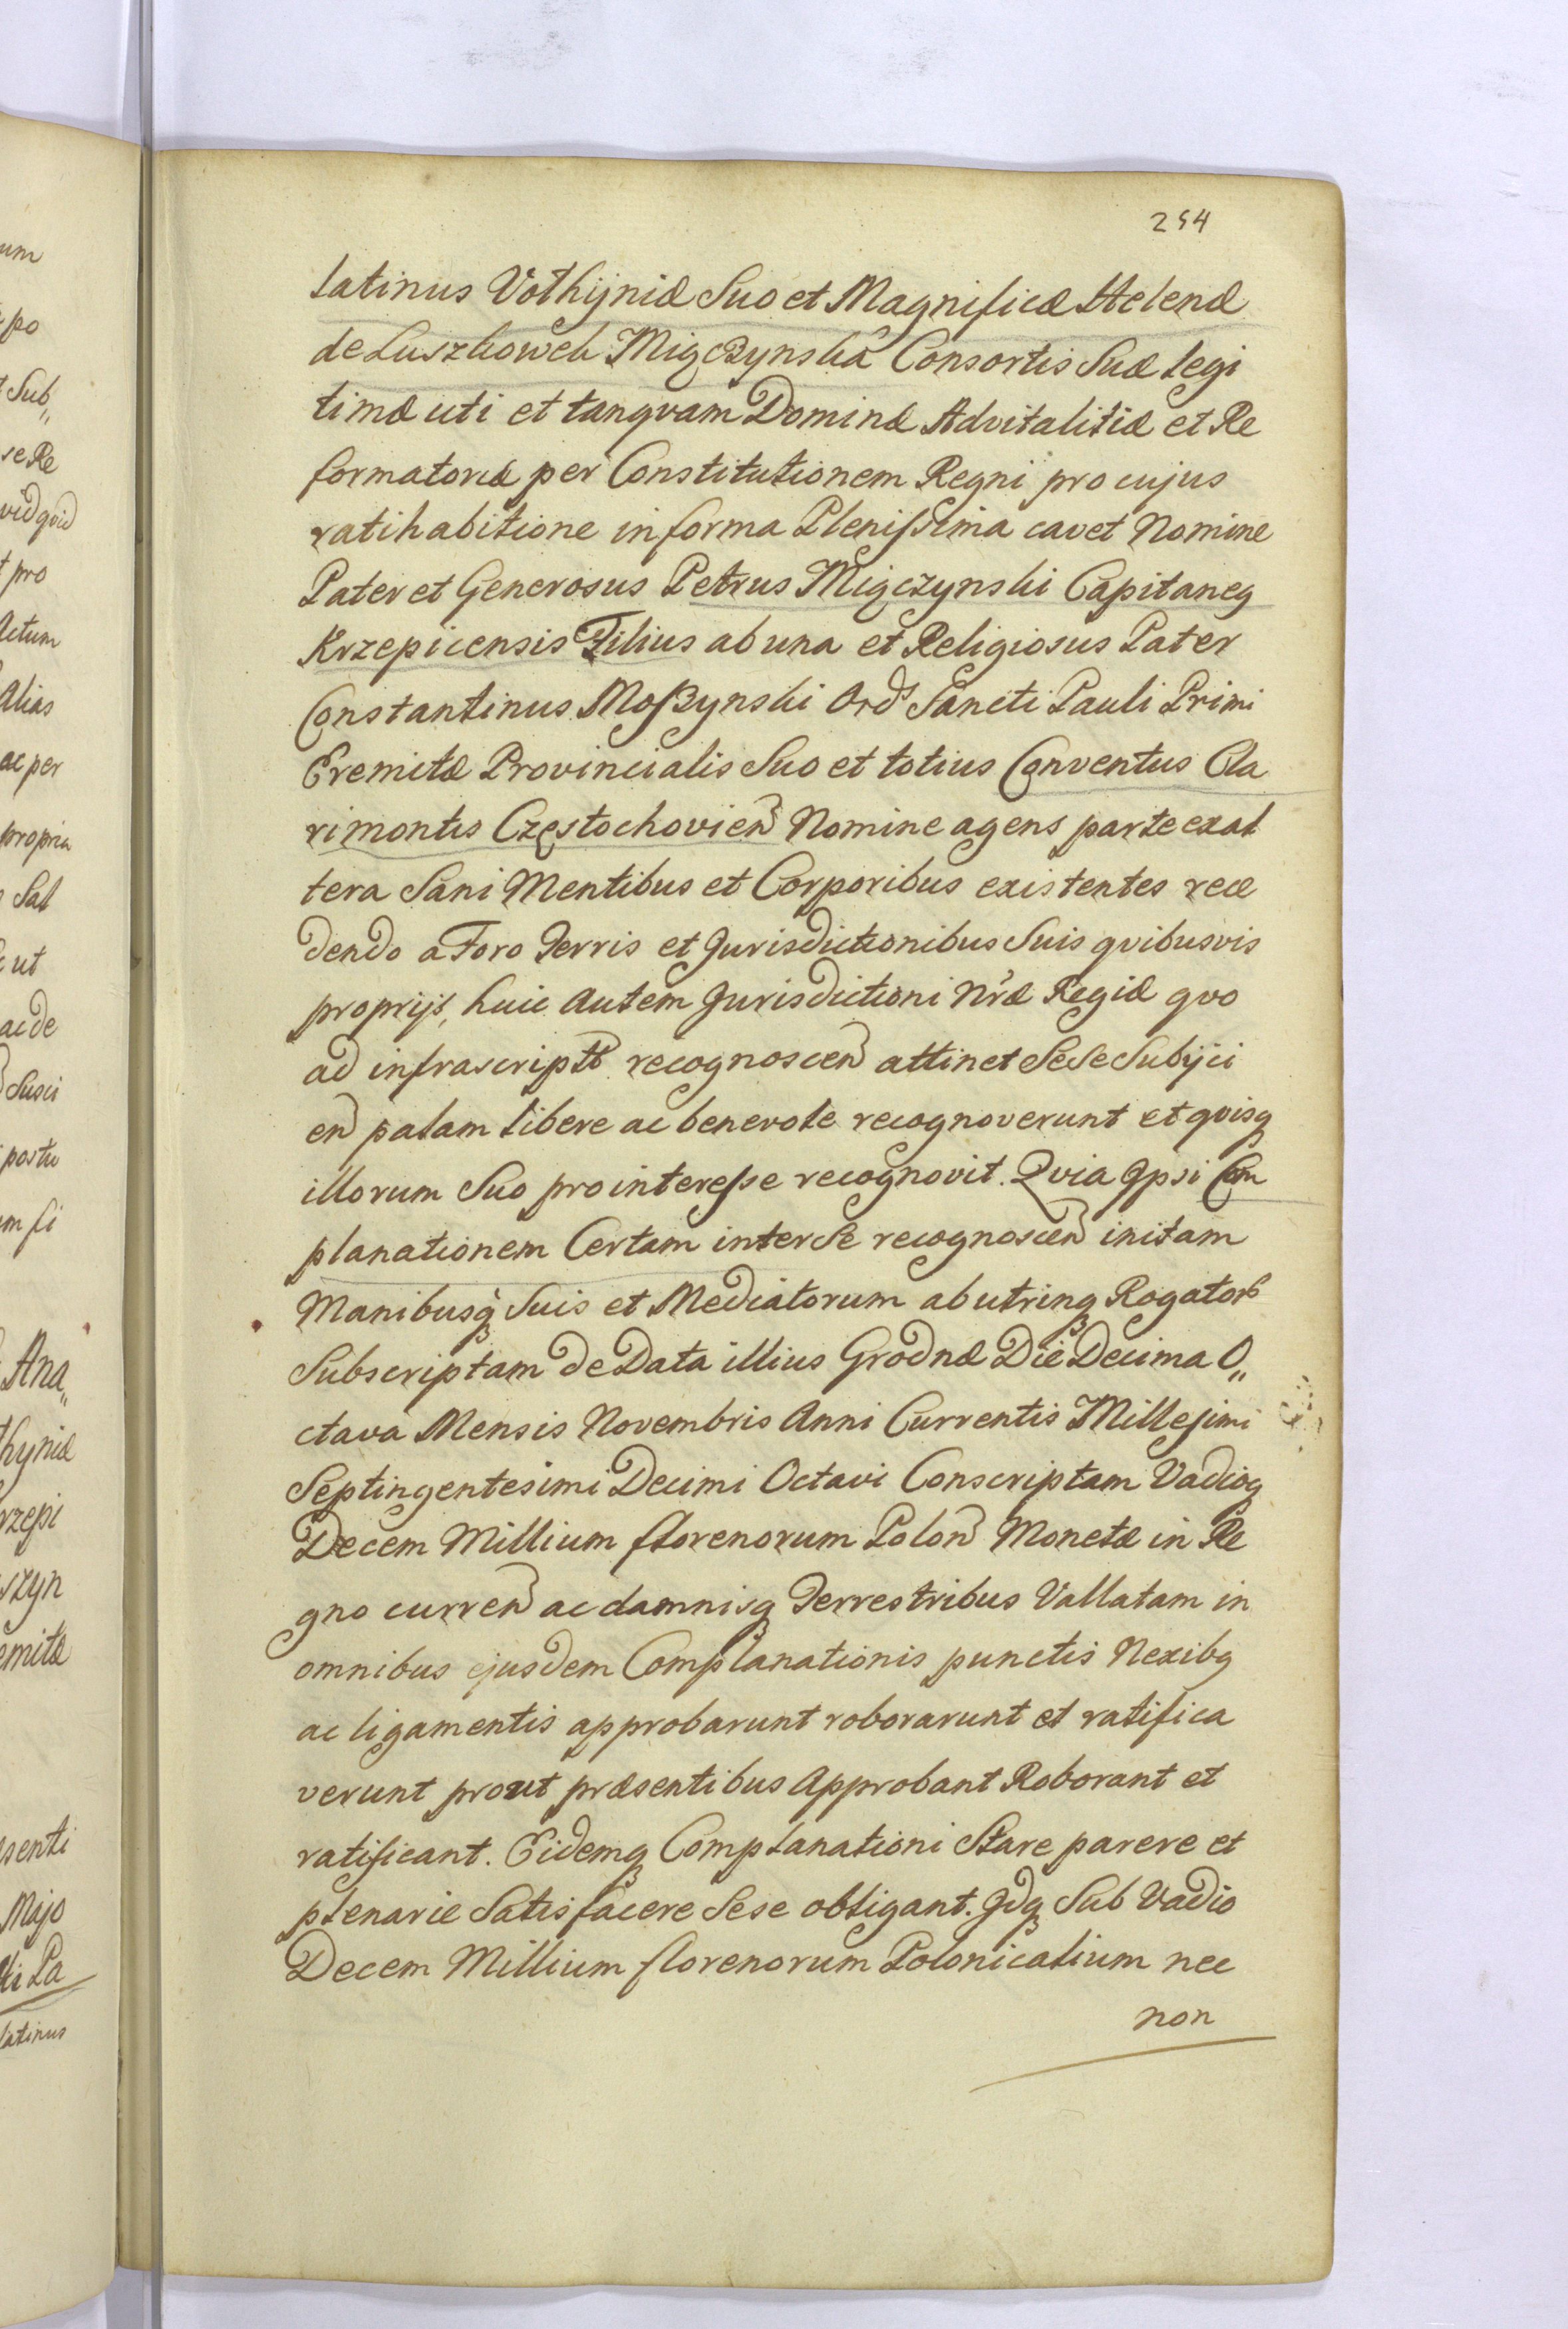 254
latinus Volhÿniæ Suo et Magnificæ Helenæ
de Luszkoweh Miączynska Consortis Suæ legi
timæ uti et tanqvam Dominæ Advitalitiæ et Re
formatoriæ per Constitutionem Regni pro cujus
ratihabitione in forma Plenissima cavet Nomine
Pater et Generosus Petrus Miączynski Capitaneq
Krzepicensis Filius ab una et Religiosus Pater
Constantinus Moszynski Ordˢ Sancti Pauli Primi
Eremitæ Provincialis Suo et totius Conventus Cla
rimontis Częstochovien Nomine agens parte ex al
tera Sani Mentibus et Corporibus existentes rece
dendo a Foro Terris et Jurisdictionibus Suis qvibusvis
proprijs, huic autem Jurisdictioni Nræ Regiæ qvo
ad infrascriptt recognoscen attinet Sese Subijci
en palam libere ac benevole recognoverunt et qvisq
illorum Suo pro interesse recognovit. Qvia Ipsi Com
planationem Certam inter Se recognoscen initam
Manibusq Suis et Mediatorum ab utrinq Rogatorb
Subscriptam de Data illius Grodnæ Die Decima O„
ctava Mensis Novembris Anni Currentis Millesimi
Septingentesimi Decimi Octavi Conscriptam Vadioq
Decem Millium florenorum Polon Monetæ in Re
gno curren ac damnisq Terrestribus Vallatam in
omnibus ejusdem Complanationis punctis Nexibq
ac ligamentis approbarunt roborarunt et ratifica
verunt prout præsentibus Approbant Roborant et
ratificant. Eidemq Complanationi Stare parere et
plenarie Satisfacere Sese obligant. Idq Sub Vadio
Decem Millium florenorum Polonicalium nec
non